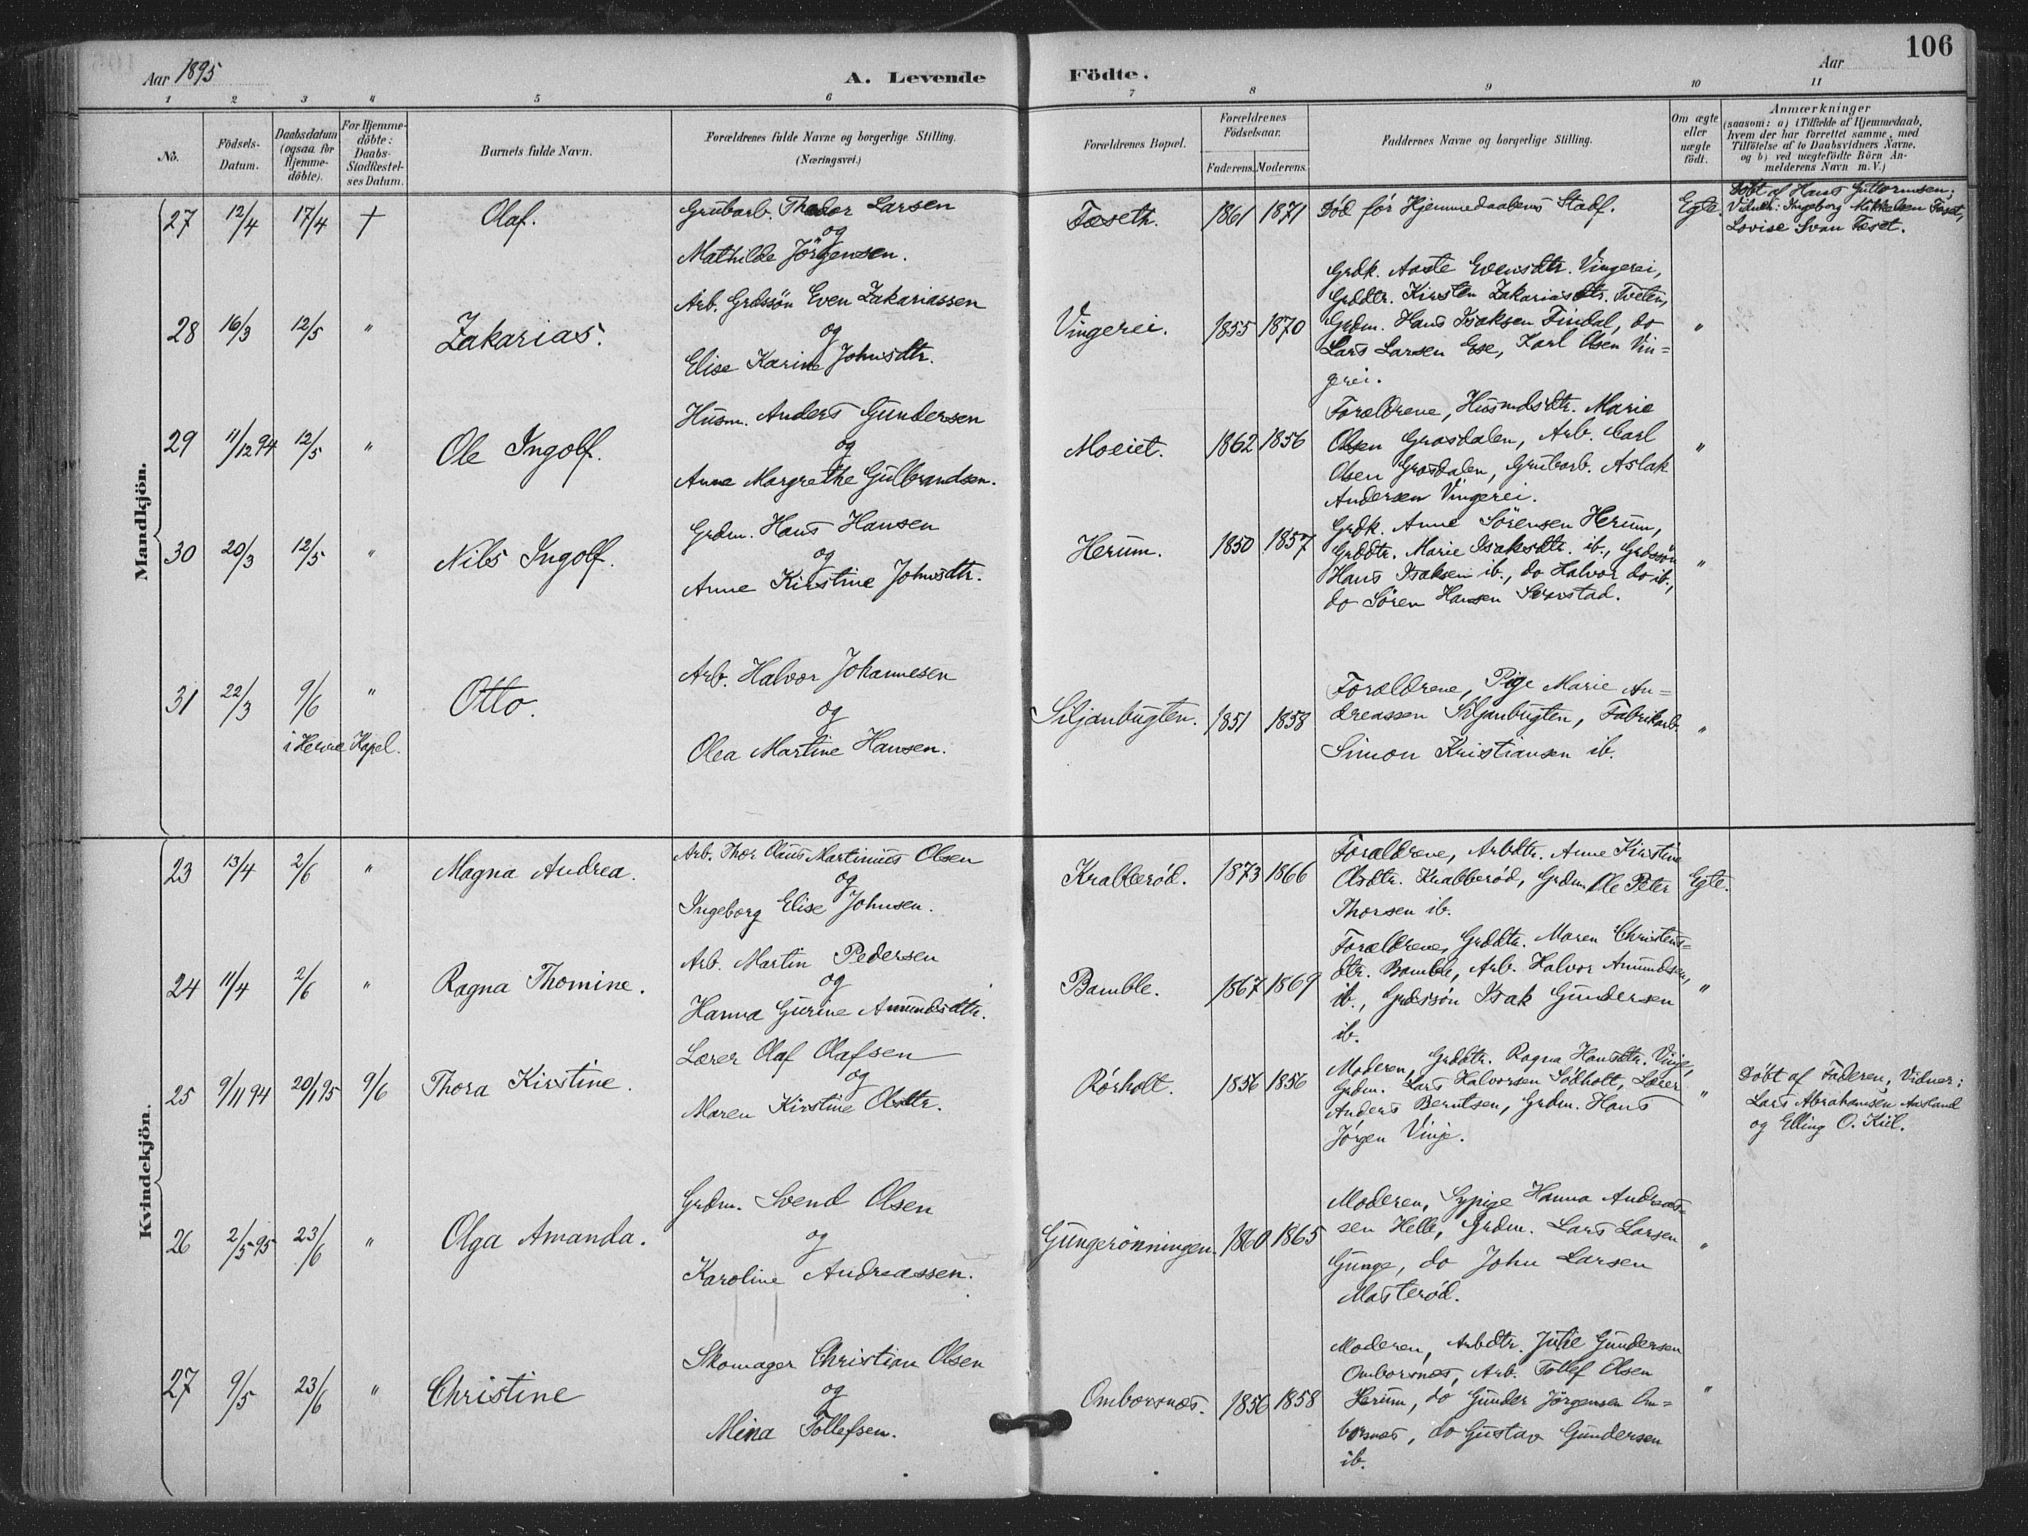 Aar 1895
A. Levende
Födte.
Aar
106
1 2 3 4 5 6 7 8 9 10 11
No.
Födsels-
Datum.
Daabsdatum
(ogsaa for
Hjemme-
döbte).
For Hjemme-
döbte:
Daabs-
Stadfæstel-
ses Datum.
Barnets fulde Navn.
Forældrenes fulde Navne og borgerlige Stilling.
(Næringsvei.)
Forældrenes Bopæl.
Forældrenes
Födselsaar.
Faderens. Moderens.
Faddernes Navne og borgerlige Stilling.
Om ægte
eller
uægte
født.
Anmærkninger
(saasom: a) i Tilfælde af Hjemmedaab,
hvem der har forrettet samme, med
Tilföielse af to Daabsvidners Navne,
og b) ved uægtefödte Börn An-
melderens Navn m. V.)
Mandkjön.
27 12/4 17/4 † Olaf.
Grubarb. Thodor Larsen
og
Mathilde Jörgensen.
Fæseth. 1861 1871 Død før Hjemmedaabens Stadf. Egte.
Døbt af Hans Guttormsen;
Vidneh: Ingeborg Mikkelsen Fæset,
Lovise Svan Fæset.
28 16/3 12/5 " Zakarias.
Arb. Grdssøn Even Zakariassen
og
Elise Karine Johnsdtr.
Vingerei. 1855 1870
Grdk. Aaste Evensdtr. Vingerei,
Grddtr. Kirsten Zakariasdtr. Tveten,
Grdm. Hans Isaksen Findal, do
Lars Larsen Ese, Karl Olsen Vin-
gerei.
"
29 11/12 94 12/5 " Ole Ingolf.
Husm. Anders Gundersen
og
Anne Margrethe Gulbrandsen.
Moeiet. 1862 1856
Forældrene, Husmdsdtr. Marie
Olsen Grasdalen, Arb. Carl
Olsen Grasdalen, Grubarb. Aslak
Andersen Vingerei.
"
30 20/3 12/5 " Nils Ingolf.
Grdm. Hans Hansen
og
Anne Kirstine Johnsdtr.
Herum. 1850 1857
Grdk. Anne Sørensen Herum,
Grddtr. Marie Isaksdtr. ib., Grdssøn
Hans Isaksen ib., do Halvor do ib.,
do Søren Hansen
"
31 22/3 9/6 " Otto.
i Herre Kapel.
Arb. Halvor Johannesen
og
Olea Martine Hansen.
Siljanbugten. 1851 1858
Forældrene, Pige Marie An-
dreassen Siljanbugten, Fabrikarb.
Simon Kristiansen ib.
"
Kvindekjön.
23 13/4 2/6 " Magna Andrea.
Arb. Thor Olaus Martinius Olsen
og
Ingeborg Elise Johnsen.
Krabberød. 1873 1866
Forældrene, Arbdtr. Anne Kirstine
Olsdtr. Krabberød, Grdm. Ole Peter
Thorsen ib.
Egte.
24 11/4 2/6 " Ragna Thomine.
Arb. Martin Pedersen
og
Hanna Gurine Amundsdtr.
Bamble. 1867 1869
Forældrene, Grddtr. Maren Christens-
dtr. Bamble, Arb. Halvor Amundsen,
ib., Grdssøn Isak Gundersen
ib.
"
25 9/11 94 20/1 95 9/6 Thora Kirstine.
Lærer Olaf Olafsen
og
Maren Kirstine Olsdtr.
Rørholt. 1856 1856
Moderen, Grddtr. Ragna Hansdtr. Vinje,
Grdm. Lars Halvorsen Sødholt, Lærer
Anders Berntsen, Grdm. Hans
Jørgen Vinje.
"
Døbt af Faderen; Vidner:
Lars Abrahamsen Aasland
og Elling O. Kiil.
26 2/5 95 23/6 " Olga Amanda.
Grdm. Svend Olsen
og
Karoline Andreassen.
Gungerønningen. 1860 1865
Moderen, Sypige Hanna Andreas-
sen Helle, Grdm. Lars Larsen
Gunge, do John Larsen
Masterød.
"
27 9/5 23/6 " Christine
Skomager Christian Olsen
og
Mina Tollefsen.
Omborsnæs. 1856 1858
Moderen, Arbdtr. Julie Gundersen
Omborsnæs, Arb. Tollef Olsen
Herum, do Gunder Jørgensen Om-
borsnæs, do Gustav Gundersen
ib.
"